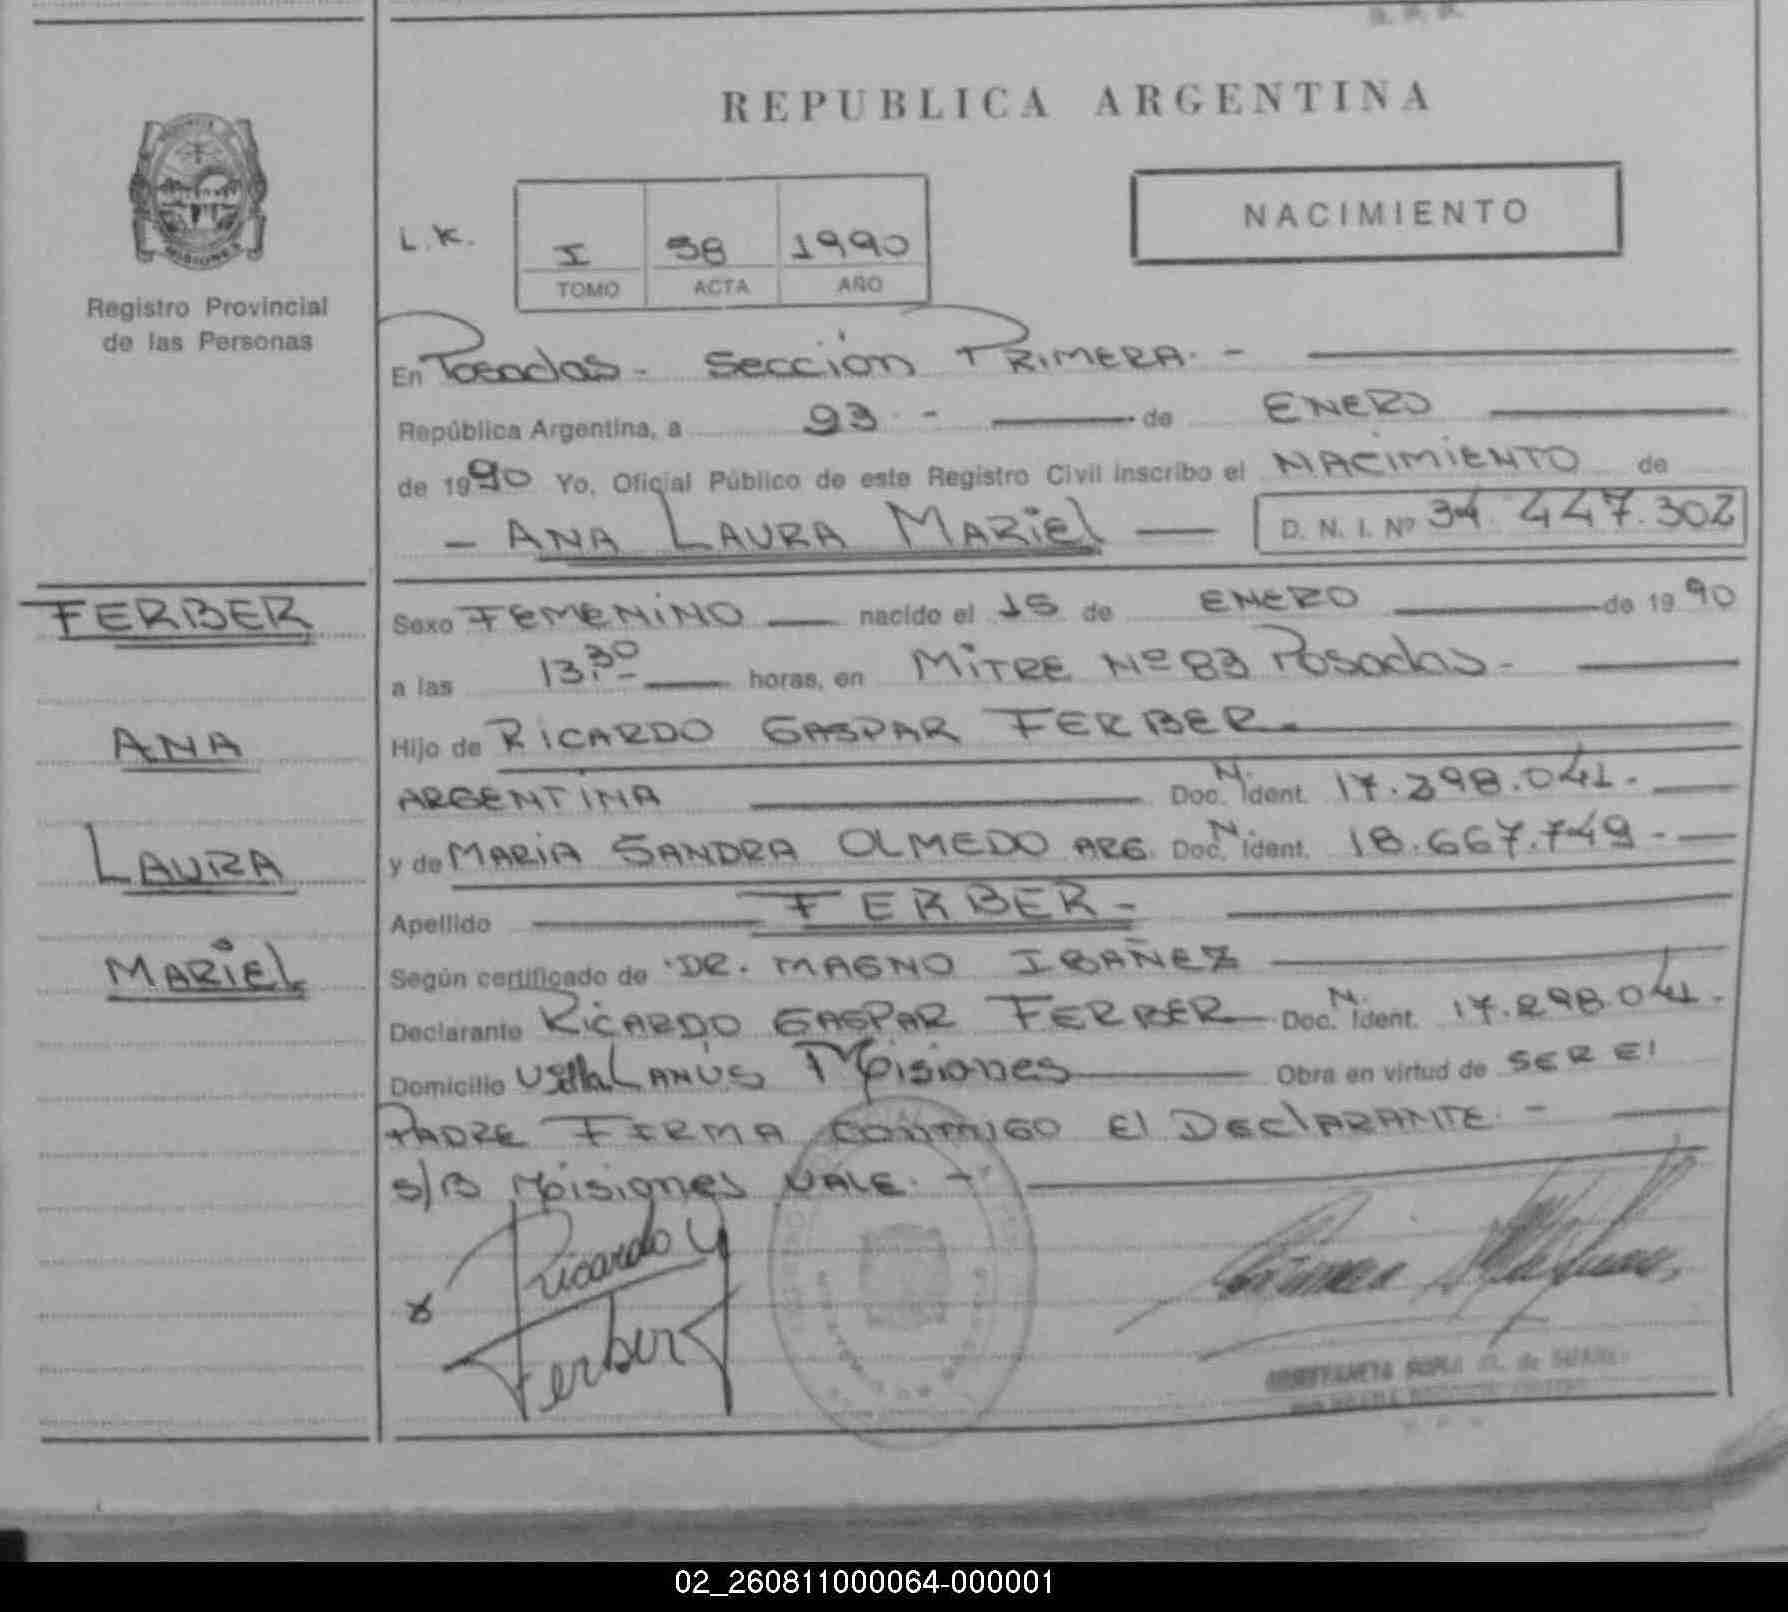 REPUBLICA ARGENTINA
NACIMIENTO
L.K.
I 58 1990
TOMO ACTA AÑO
MISIONES
Registro Provincial
de las Personas
En Posadas - Sección PRIMERA. -
República Argentina, a 23 - de ENERO
de 1990 Yo, Oficial Público de este Registro Civil inscribo el NACIMIENTO de
- ANA LAURA MARIEL - D. N. I. Nº 34.447.302
FERBER
ANA
LAURA
MARIEL
Sexo FEMENINO nacido el 15 de ENERO de 1990
a las 13.30 horas, en MITRE Nº 83 Posadas -
Hijo de RICARDO GASPAR FERBER
ARGENTINA Doc. N. Ident. 17.298.041.
y de MARIA SANDRA OLMEDO ARG. Doc. N. Ident. 18.667.749 -
Apellido FERBER -
Según certificado de DR. MAGNO IBAÑEZ
Declarante RICARDO GASPAR FERBER Doc. N. Ident. 17.298.041.
Domicilio Villa LANÚS Misiones Obra en virtud de SER El
PADRE FIRMA CONMIGO El DEClARANTE. -
S/B Misiones VALE. -
x Ricardo G
Ferber
02_260811000064-000001